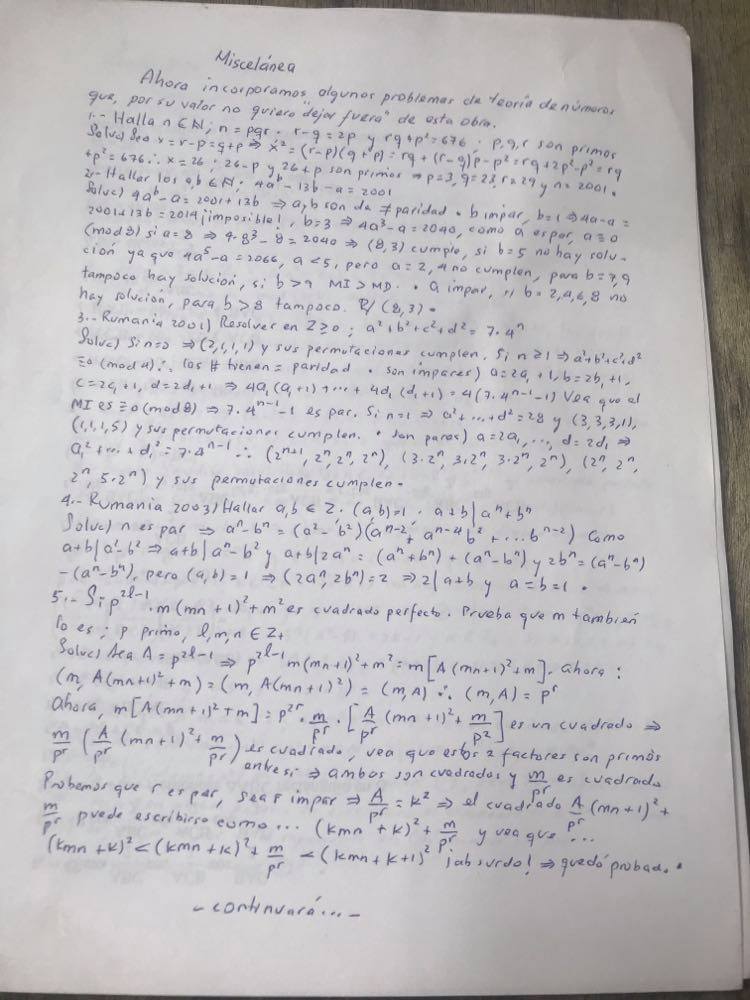 Miscelánea
Ahora incorporamos algunos problemas de teoría de números
que, por su valor no quiero "dejar fuera" de esta obra.
1.- Halla n ∈ N; n = pqr · r-q = 2p y rq+p² = 676 ; p,q,r son primos
Soluc) Sea x = r-p = q+p ⇒ x² = (r-p)(q+p) = rq + (r-q)p - p² = rq + 2p² - p² = rq
+p² = 676 ∴ x = 26 ; 26-p y 26+p son primos ⇒ p=3, q=23, r=29 y n=2001.
2.- Hallar los a,b ∈ N; 4a^b - 13b - a = 2001
Soluc) 4a^b - a = 2001 + 13b ⇒ a,b son de ≠ paridad · b impar, b=1 ⇒ 4a-a =
2001+13b = 2014 ¡imposible!, b=3 ⇒ 4a³-a = 2040, como a es par, a ≡ 0
(mod 8) si a=8 ⇒ 4·8³-8 = 2040 ⇒ (8,3) cumple, si b=5 no hay solu-
ción ya que 4a⁵-a = 2066, a<5, pero a=2,4 no cumplen, para b=7,9
tampoco hay solución, si b>9 MI>MD. · a impar, si b=2,4,6,8 no
hay solución, para b>8 tampoco. R/ (8,3).
3.- Rumania 2001) Resolver en Z≥0 ; a²+b²+c²+d² = 7·4ⁿ
Soluc) Si n=0 ⇒ (2,1,1,1) y sus permutaciones cumplen. Si n≥1 ⇒ a²+b²+c²+d²
≡0 (mod 4) ∴ los # tienen = paridad · son impares) a=2a₁+1, b=2b₁+1,
c=2c₁+1, d=2d₁+1 ⇒ 4a₁(a₁+1)+···+4d₁(d₁+1) = 4(7·4ⁿ⁻¹-1) Vea que el
MI es ≡0 (mod 8) ⇒ 7·4ⁿ⁻¹-1 es par. Si n=1 ⇒ a²+...+d²=28 y (3,3,3,1),
(1,1,1,5) y sus permutaciones cumplen. · son pares) a=2a₁, ..., d=2d₁ ⇒
a₁²+...+d₁² = 7·4ⁿ⁻¹ ∴ (2ⁿ⁺¹, 2ⁿ, 2ⁿ, 2ⁿ), (3·2ⁿ, 3·2ⁿ, 3·2ⁿ, 2ⁿ), (2ⁿ, 2ⁿ,
2ⁿ, 5·2ⁿ) y sus permutaciones cumplen.
4.- Rumania 2003) Hallar a,b ∈ Z · (a,b)=1 · a+b | aⁿ+bⁿ
Soluc) n es par ⇒ aⁿ-bⁿ = (a²-b²)(aⁿ⁻²+aⁿ⁻⁴b²+...bⁿ⁻²) Como
a+b | a²-b² ⇒ a+b | aⁿ-bⁿ y a+b | 2aⁿ = (aⁿ+bⁿ) + (aⁿ-bⁿ) y 2bⁿ = (aⁿ-bⁿ)
-(aⁿ-bⁿ), pero (a,b)=1 ⇒ (2aⁿ, 2bⁿ)=2 ⇒ 2|a+b y a=b=1 ·
5.- Si p²ˡ⁻¹·m(mn+1)²+m² es cuadrado perfecto. Prueba que m también
lo es ; p primo, l,m,n ∈ Z₊
Soluc) Sea A = p²ˡ⁻¹ ⇒ p²ˡ⁻¹m(mn+1)²+m² = m[A(mn+1)²+m]. ahora :
(m, A(mn+1)²+m) = (m, A(mn+1)²) = (m,A) ∴ (m,A) = pʳ
Ahora, m[A(mn+1)²+m] = p²ʳ · m/pʳ · [A/pʳ (mn+1)² + m/p²] es un cuadrado ⇒
m/pʳ (A/pʳ (mn+1)² + m/pʳ) es cuadrado, vea que estos 2 factores son primos
entre si ⇒ ambos son cuadrados y m/pʳ es cuadrado
Probemos que r es par, sea r impar ⇒ A/pʳ = k² ⇒ el cuadrado A/pʳ (mn+1)² +
m/pʳ puede escribirse como ... (kmn+k)² + m/pʳ y vea que ...
(kmn+k)² < (kmn+k)² + m/pʳ < (kmn+k+1)² ¡absurdo! ⇒ quedó probado.
- continuará... -